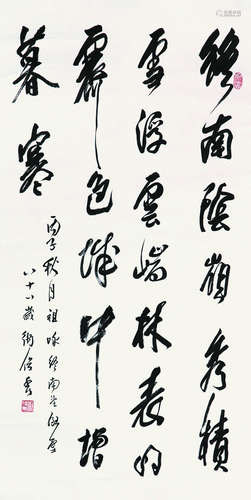 終南陰嶺秀積
雪浮雲端林表明
霽色城中增
暮寒
丙子秋月祖咏終南望餘雪
八十八歲衛俊秀